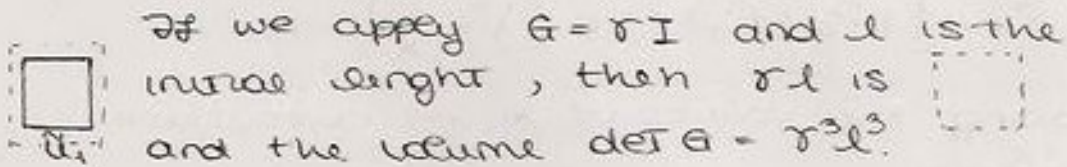 If we appey G = γI and l is the
initial lenght, then γl is
and the volume det G = γ³l³.